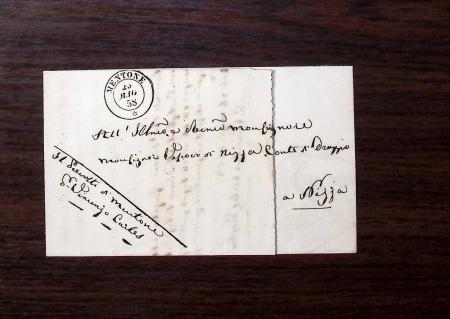 MENTONE
23
MAG
58
All' Illmo e Revmo Monsignore
Monsignor Vescovo di Nizza Conte di Drappo
a Nizza
di Mentone